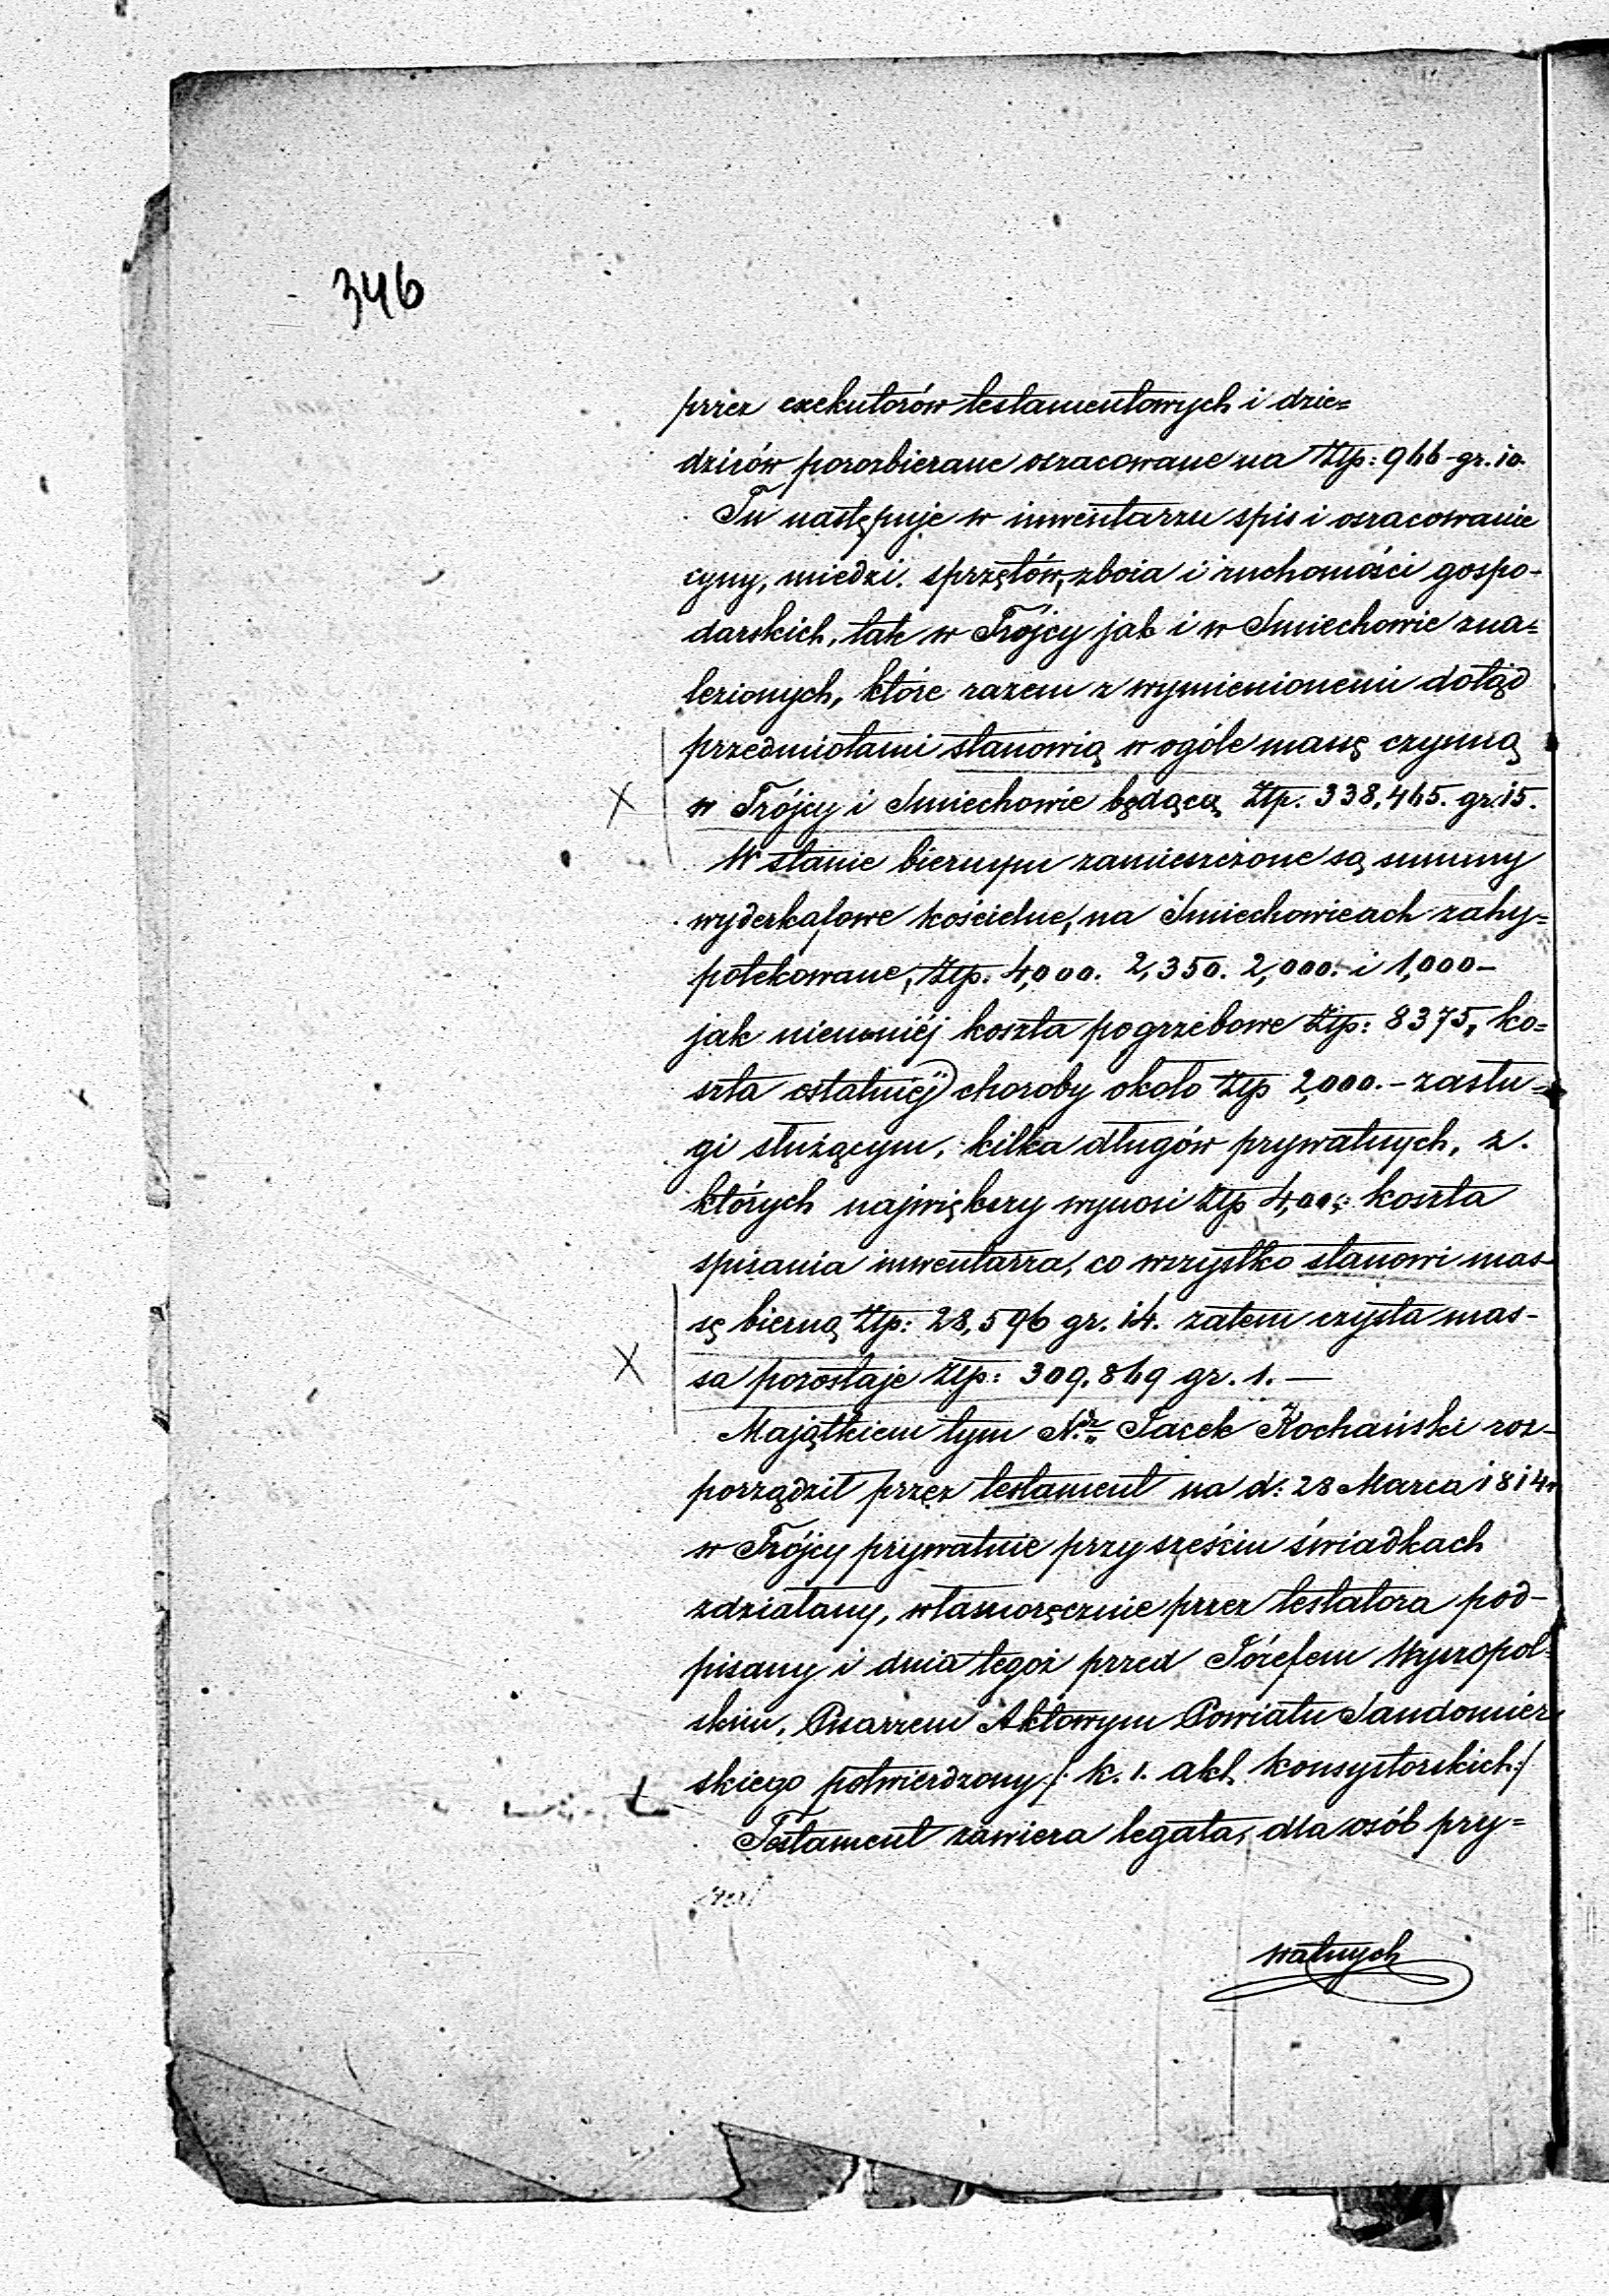 346
przez exekutorów testamentowych i dzie=
dziców porozbierane oszacowane na Złp: 966 - gr. 10.
Tu następuje w inwentarzu spis i oszacowanie
cyny, miedzi, sprzętów, zboia i ruchomości gospo-
darskich, tak w Trójcy jak i w Smiechowie zna=
lezionych, które razem z wymienionemi dotąd
przedmiotami stanowią w ogóle massę czynną
w Trójcy i Smiechowie będącą Złp. 338,465. gr. 15.
W stanie biernym zamieszczone są summy
wyderkafowe kościelne, na Smiechowicach zahy=
potekowane, Złp. 4,000. 2,350. 2,000. i 1,000 -
jak niemniéj koszta pogrzebowe Złp: 8375, ko=
szta ostatniéj choroby około Złp 2,000. - zasłu=
gi służącym, kilka długów prywatnych, z
których największy wynosi Złp 4,000; koszta
spisania inwentarza, co wszystko stanowi mas-
sę bierną Złp: 28,596 gr. 14. zatem czysta mas-
sa pozostaje Złp: 309,869 gr. 1. —
Majątkiem tym Jacek Kochański roz-
porządził przez testament na d: 28 Marca 1814 r
w Trójcy prywatnie przy sześciu świadkach
zdziałany, własnoręcznie przez testatora pod-
pisany i dnia tegoż przed Józefem Wyszopol=
skim, Pisarzem Aktowym Powiatu Sandomier
skiego potwierdzony /: k. 1. akt. konsystorskich :/
Testament zawiera legata, dla osób pry=
watnych